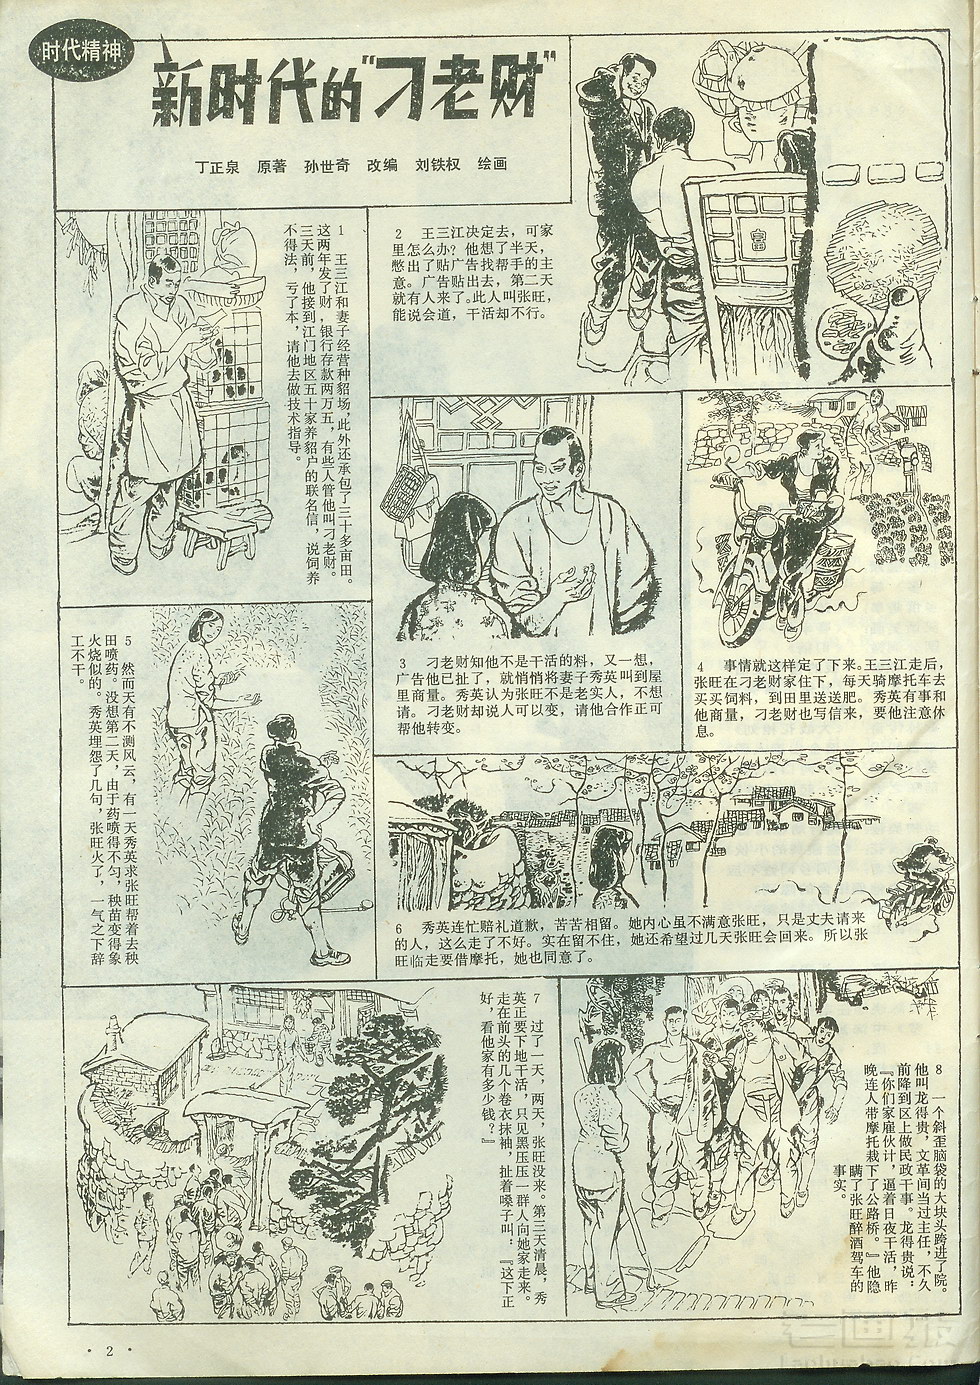 时代精神
新时代的“刁老财”
丁正泉　原著　孙世奇　改编　刘铁权　绘画
1　王三江和妻子经营种貂场，此外还承包了三十多亩田。
这两年发了财，银行存款两万五，有些人管他叫刁老财。
三天前，他接到江门地区五十家养貂户的联名信，说饲养
不得法，亏了本，请他去做技术指导。
2　王三江决定去，可家
里怎么办？他想了半天，
憋出了贴广告找帮手的主
意。广告贴出去，第二天
就有人来了。此人叫张旺，
能说会道，干活却不行。
富
3　刁老财知他不是干活的料，又一想，
广告他已扯了，就悄悄将妻子秀英叫到屋
里商量。秀英认为张旺不是老实人，不想
请。刁老财却说人可以变，请他合作正可
帮他转变。
4　事情就这样定了下来。王三江走后，
张旺在刁老财家住下，每天骑摩托车去
买买饲料，到田里送送肥。秀英有事和
他商量，刁老财也写信来，要他注意休
息。
5　然而天有不测风云，有一天秀英求张旺帮着去秧
田喷药。没想第二天，由于药喷得不匀，秧苗变得象
火烧似的。秀英埋怨了几句，张旺火了，一气之下辞
工不干。
6　秀英连忙赔礼道歉，苦苦相留。她内心虽不满意张旺，只是丈夫请来
的人，这么走了不好。实在留不住，她还希望过几天张旺会回来。所以张
旺临走要借摩托，她也同意了。
7　过了一天，两天，张旺没来。第三天清晨，秀
英正要下地干活，只见黑压压一群人向她家走来。
走在前头的几个卷衣抹袖，扯着嗓子叫：『这下正
好，看他家有多少钱？』
8　一个斜歪脑袋的大块头跨进了院。
他叫龙得贵，文革间当过主任，不久
前降到区上做民政干事。龙得贵说：
『你们家雇伙计，逼着日夜干活，昨
晚连人带摩托栽下了公路桥。』他隐
瞒了张旺醉酒驾车的
事实。
·2·